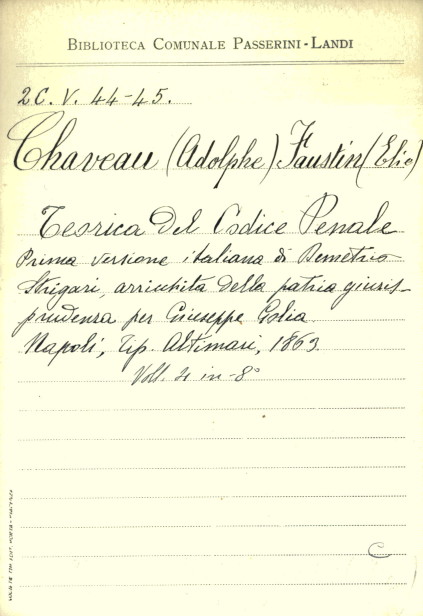 BIBLIOTECA COMUNALE PASSERINI-LANDI
2C. V. 44-45.
Chaveau (Adolphe) Faustin (Elie)
Teorica Del Codice Penale
Prima versione italiana di Demetrio
Strigari, arricchita della patria giuris-
prudenza per Giuseppe
Napoli, Tip. Altimari, 1863.
Voll. 4 in-8°
C